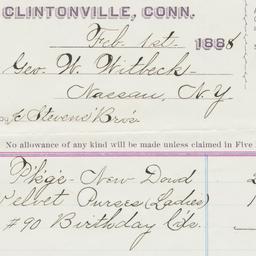 CLINTONVILLE, CONN.
Feb. 1st 1888
Geo. W. Witbeck
Nassau, N.Y
Stevens Bros.
No allowance of any kind will be made unless claimed in Five
Pkge New Dowd
Velvet Purses (Ladies)
#90 Birthday Cds.